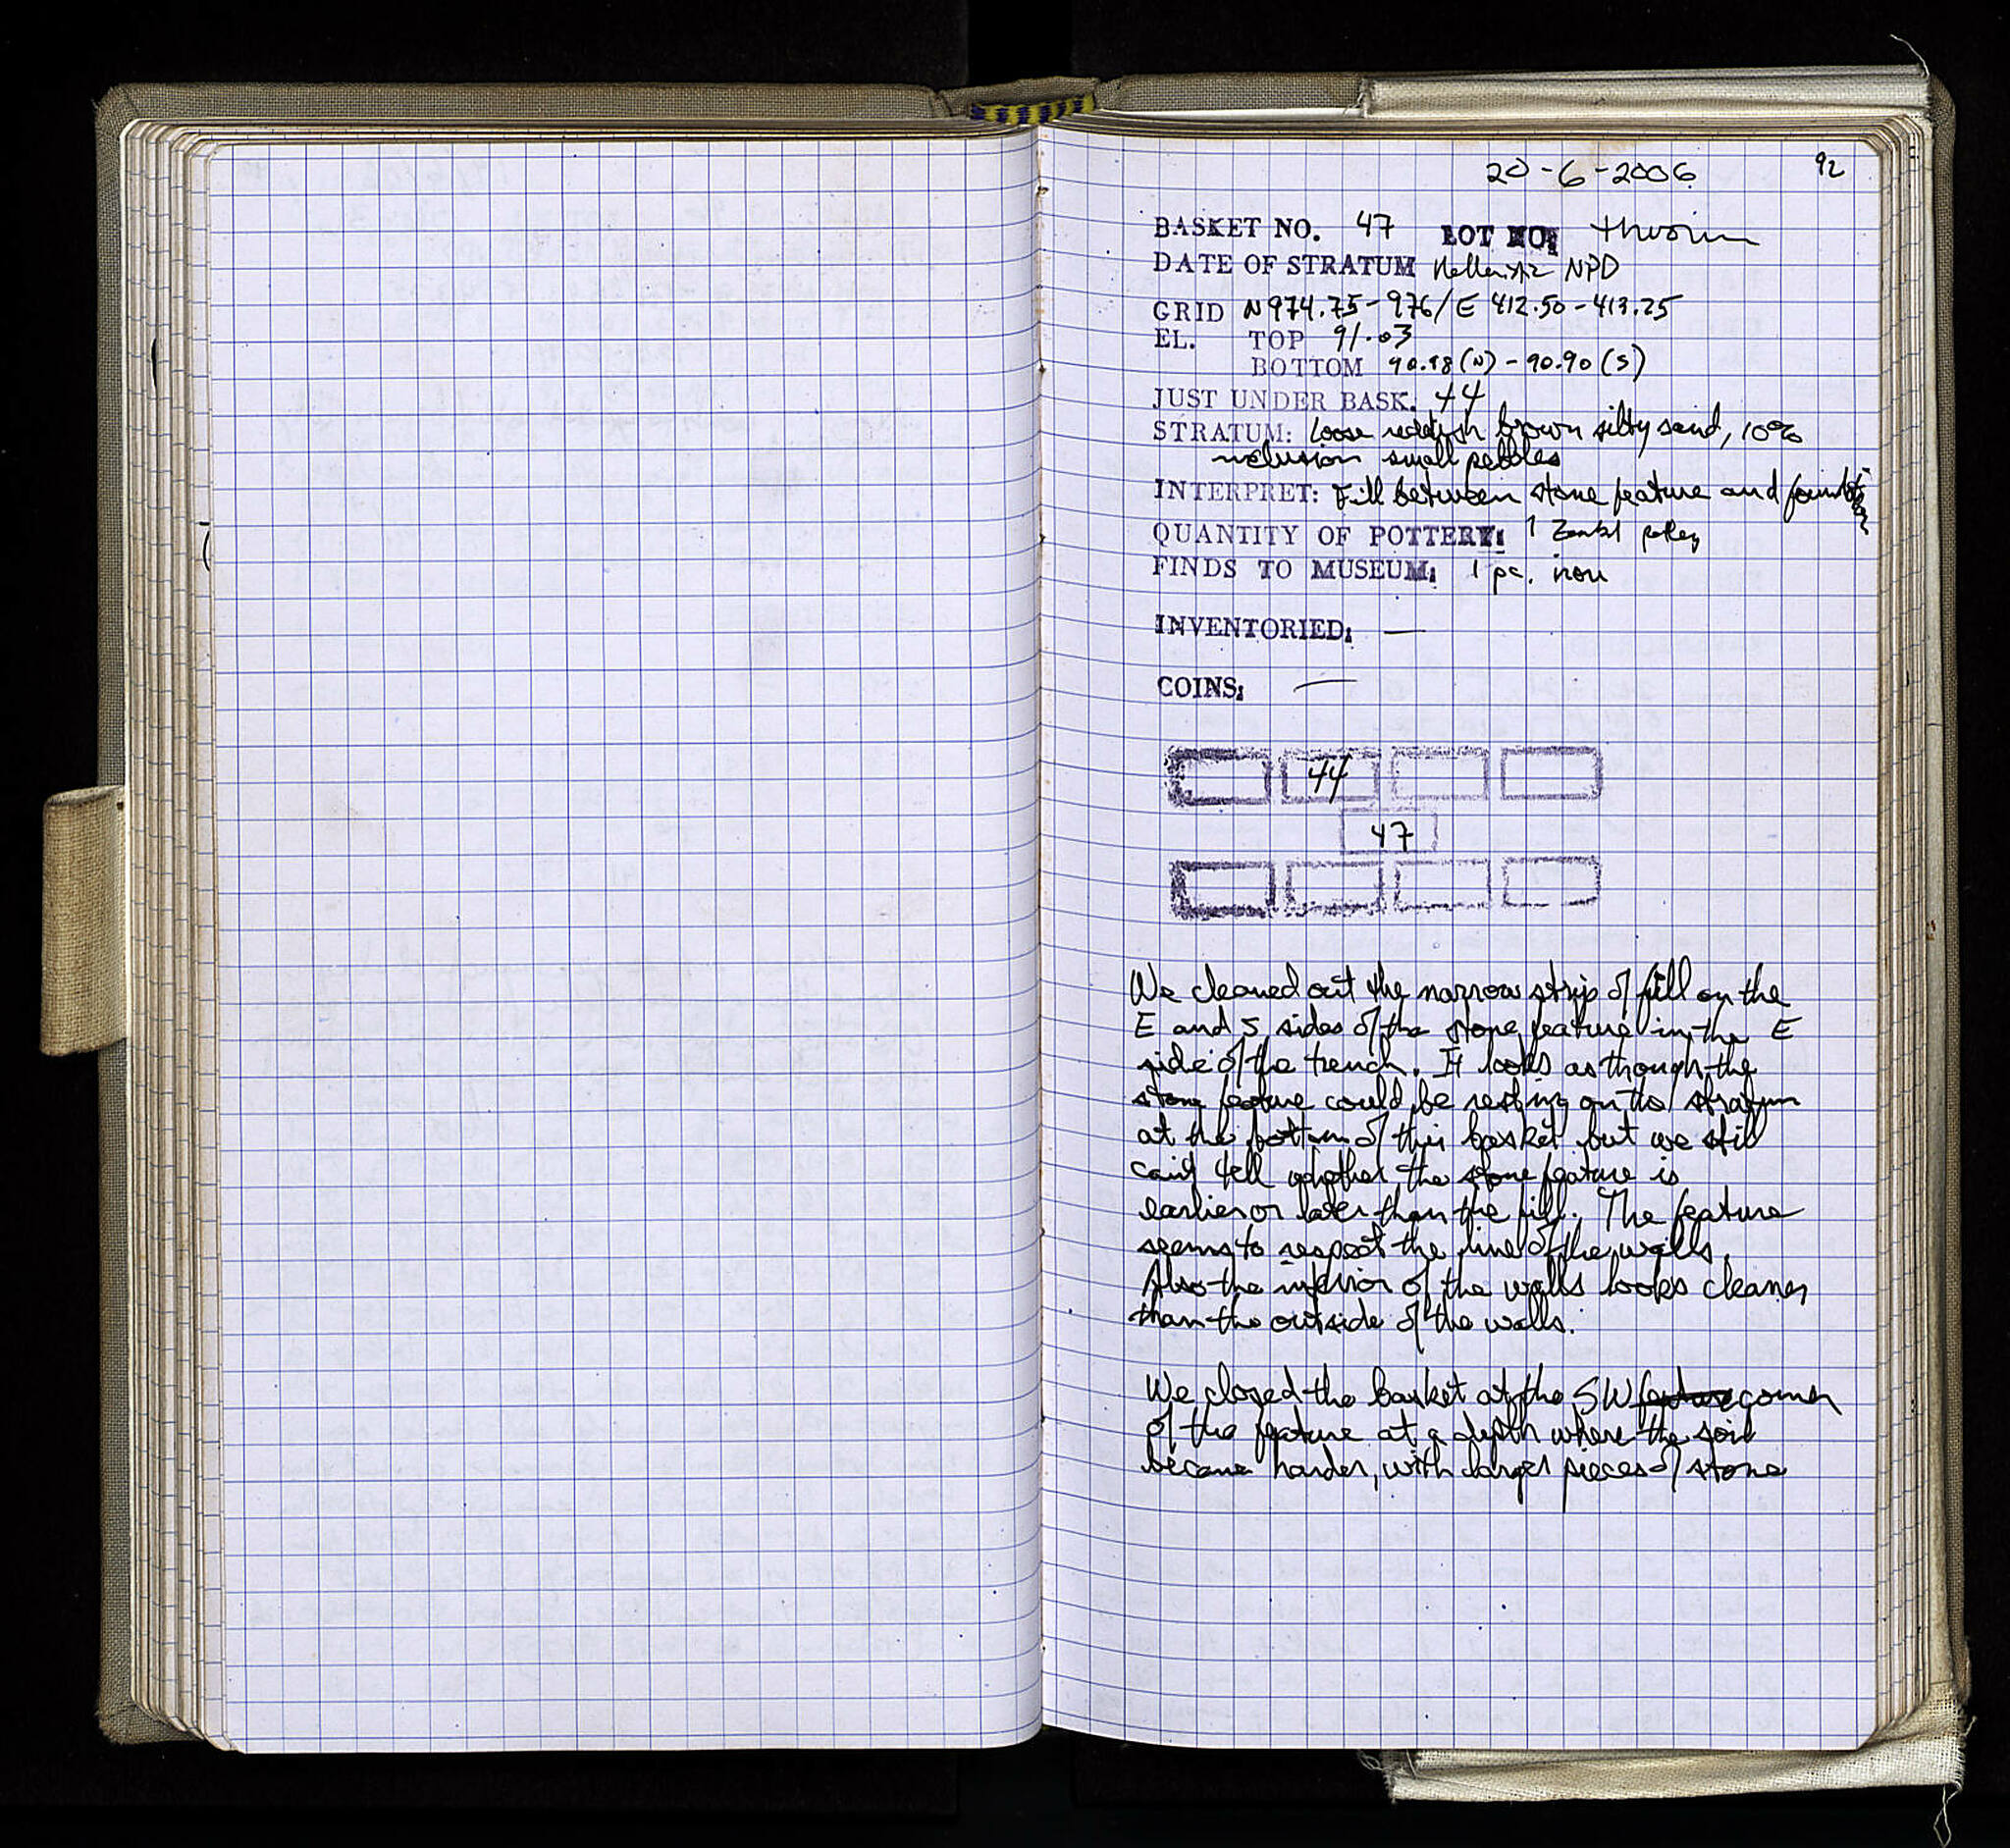 20-6-2006
92
BASKET NO. 47 LOT NO:
DATE OF STRATUM NPD
GRID N974.75-976/E 412.50-413.25
EL. TOP 91.03
BOTTOM (N) - 90.90 (S)
JUST UNDER BASK. 44
STRATUM: Loose reddish brown silty sand, 10%
inclusion small pebbles
INTERPRET: Fill between stone feature and
QUANTITY OF POTTERY: 1
FINDS TO MUSEUM: 1 pc. iron
INVENTORIED: —
COINS: —
44
47
We cleaned out the narrow strip of fill on the
E and S sides of the stone feature in the E
side of the trench. It looks as though the
stone feature could be resting on the stratum
at the bottom of this basket but we still
can't tell whether the stone feature is
earlier or later than the fill. The feature
seems to respect the line of the walls.
Also the interior of the walls looks cleaner
than the outside of the walls.
We closed the basket at the SW feature corner
of the feature at a depth where the soil
became harder, with larger pieces of stone